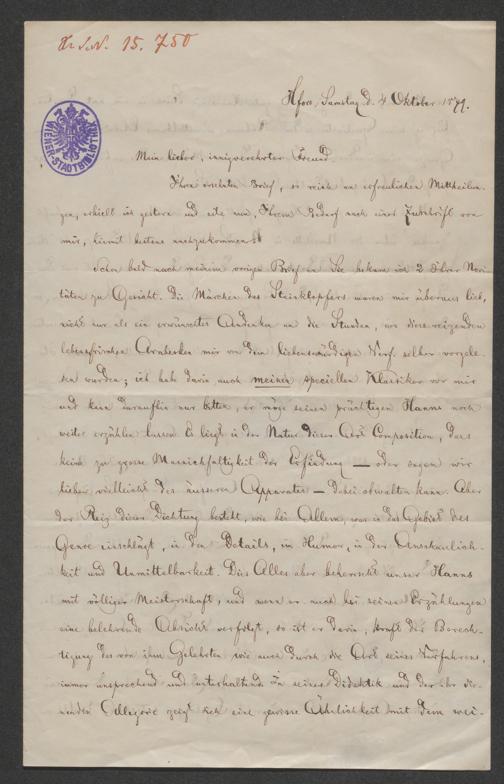 15.750
WIENER-STADTBIBLIOTHEK
Samstag d. 4 Oktober 1879.
Mein lieber, innigverehrter Freund
Ihren ersehnten Brief, so reich an erfreulichen Mittheilun-
gen, erhielt ich gestern und eile nun, Ihrem Bedarf nach einer Zuschrift von
mir, hiemit bestens nachzukommen.
Schon bald nach meinem vorigen Brief an Sie bekam ich 2 Ihrer Novi
täten zu Gesicht. Die Märchen des Steinklopfers waren mir überaus lieb,
nicht nur als ein erwünschtes Andenken an die Stunden, wo diese reizenden
lebensfrischen Arabesken mir von dem liebenswürdigen Verf. selber vorgele-
sen wurden; ich habe darin auch meinen speciellen Klassiker vor mir
und kann daraufhin nur bitten, er möge seinen prächtigen Hanns noch
weiter erzählen lassen. Es liegt in der Natur dieser Art Composition, dass
keine zu grosse Mannichfaltigkeit der Erfindung — oder sagen wir
lieber vielleicht des äusseren Apparates — dabei obwalten kann. Aber
der Reiz dieser Dichtung besteht, wie bei Allem, was in das Gebiet des
Genre einschlägt, in den Details, im Humor, in der Anschaulich-
keit und Unmittelbarkeit. Dies Alles aber beherrscht unser Hanns
mit völliger Meisterschaft, und wenn er auch bei seinen Erzählungen
eine belehrende Absicht verfolgt, so ist er darin, kraft der Berech-
tigung des von ihm Gelehrten wie auch durch die Art seines Verfahrens,
immer ansprechend und unterhaltend. In seiner Didaktik und der ihr die-
nenden Allegorie zeigt sich eine gewisse Ähnlichkeit mit dem wei-